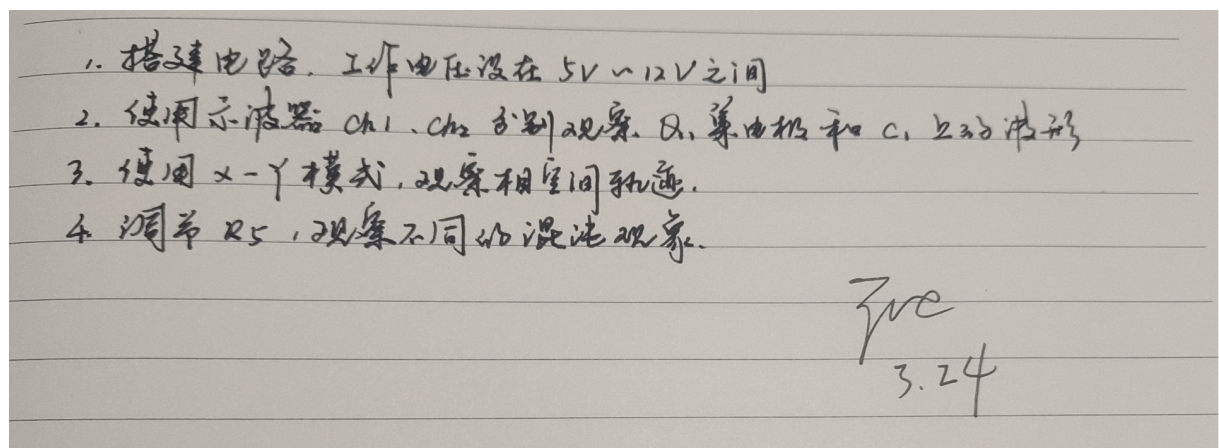 1. 搭建电路. 工作电压设在 5V~12V之间
2. 使用示波器 Ch1、Ch2 分别观察 Q1 集电极和 C1 上的波形
3. 使用 X-Y 模式, 观察相空间轨迹.
4. 调节 R5, 观察不同的混沌现象.
3.24